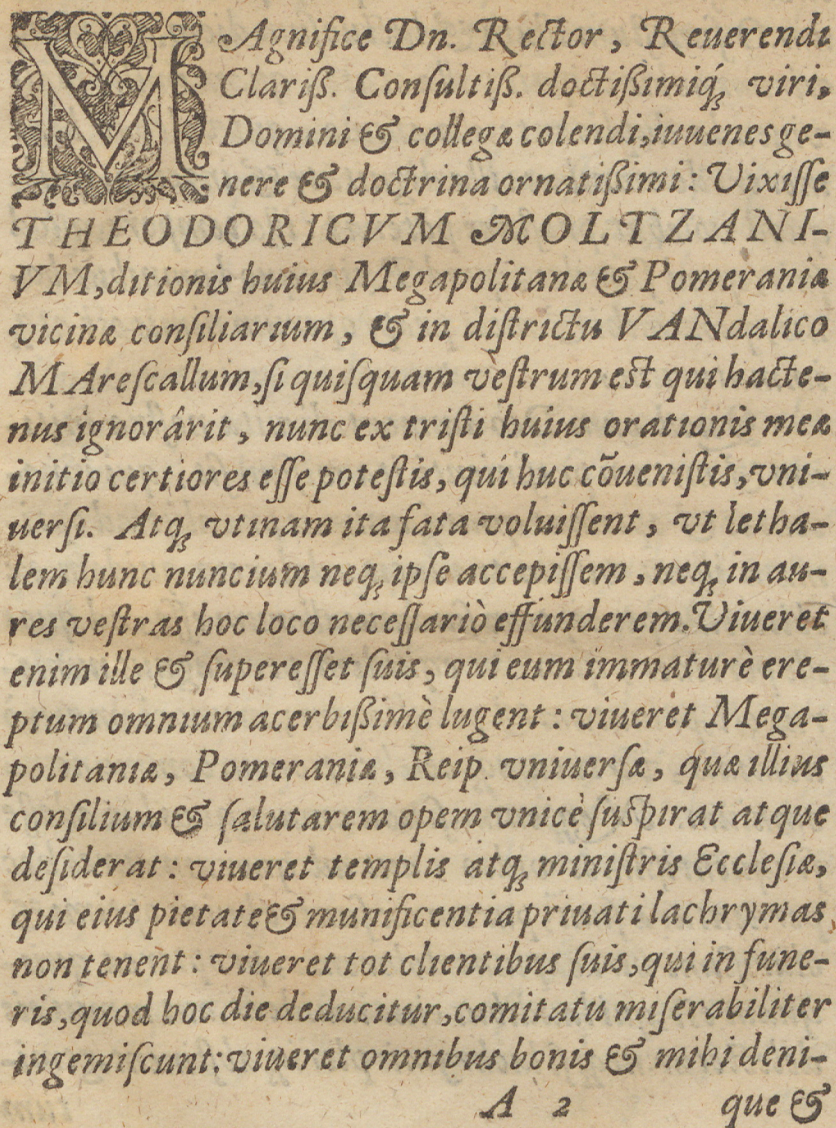 MAgnifice Dn. Rector, Reuerendi
Clariß. Conſultiß. doctißimiq́; viri,
Domini & collegæ colendi, iuuenes ge-
nere & doctrina ornatißimi: Vixiſſe
THEODORICVM MOLTZANI-
VM, ditionis huius Megapolitanæ & Pomeraniæ
vicinæ conſiliarium, & in diſtrictu VANdalico
MAreſcallum, ſi quiſquam veſtrum eſt qui hacte-
nus ignorârit, nunc ex triſti huius orationis meæ
initio certiores eſſe poteſtis, qui huc cōueniſtis, vni-
uerſi. Atq; vtinam ita fata voluiſſent, vt letha-
lem hunc nuncium neq; ipſe accepiſſem, neq; in au-
res veſtras hoc loco neceſſariò effunderem. Viueret
enim ille & ſupereſſet ſuis, qui eum immaturè ere-
ptum omnium acerbißimè lugent: viueret Mega-
politaniæ, Pomeraniæ, Reip. vniuerſæ, quæ illius
conſilium & ſalutarem opem vnicè ſuſpirat atque
deſiderat: viueret templis atq; miniſtris Eccleſiæ,
qui eius pietate & munificentia priuati lachrymas
non tenent: viueret tot clientibus ſuis, qui in fune-
ris, quod hoc die deducitur, comitatu miſerabiliter
ingemiſcunt: viueret omnibus bonis & mihi deni-
A 2 que &